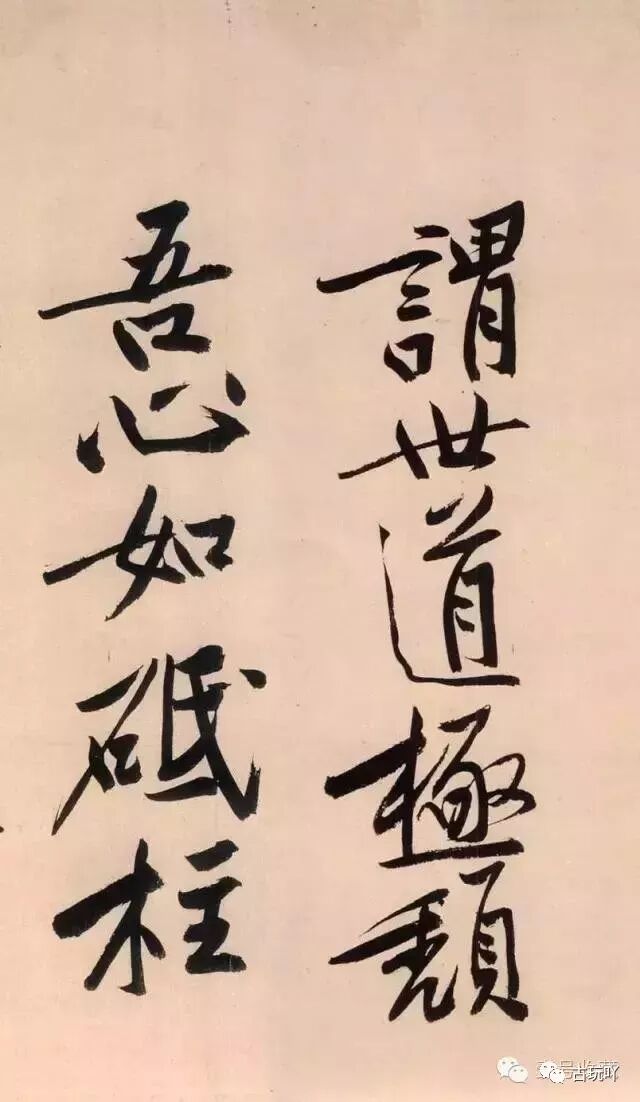 謂世道極頹
吾心如砥柱
古玩吖